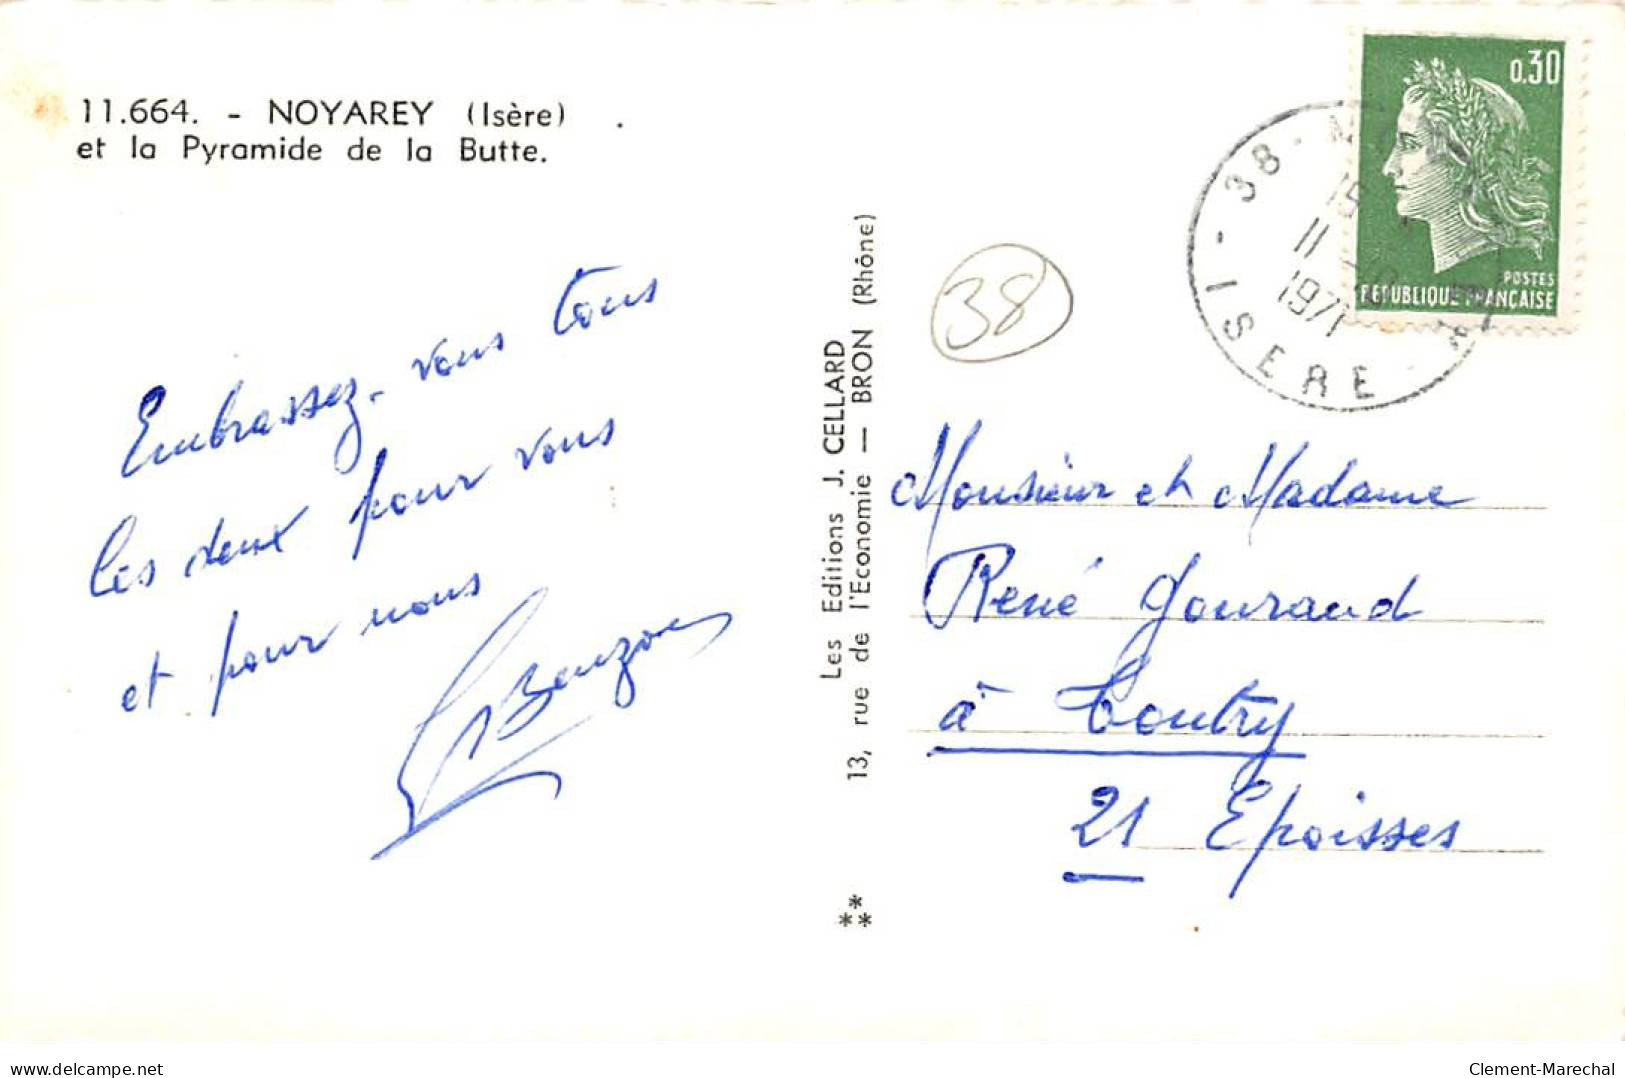 11.664. - NOYAREY (Isère)
et la Pyramide de la Butte.
Embrassez-vous tous
les deux pour vous
et pour nous
Les Editions J. CELLARD
13, rue de l'Economie — BRON (Rhône)
**
38
0,30
POSTES
REPUBLIQUE FRANÇAISE
38 -
11
1971
ISERE
Monsieur et Madame
René Gouraud
à Toutry
21 Epoisses
delcampe.net
Clement-Marechal